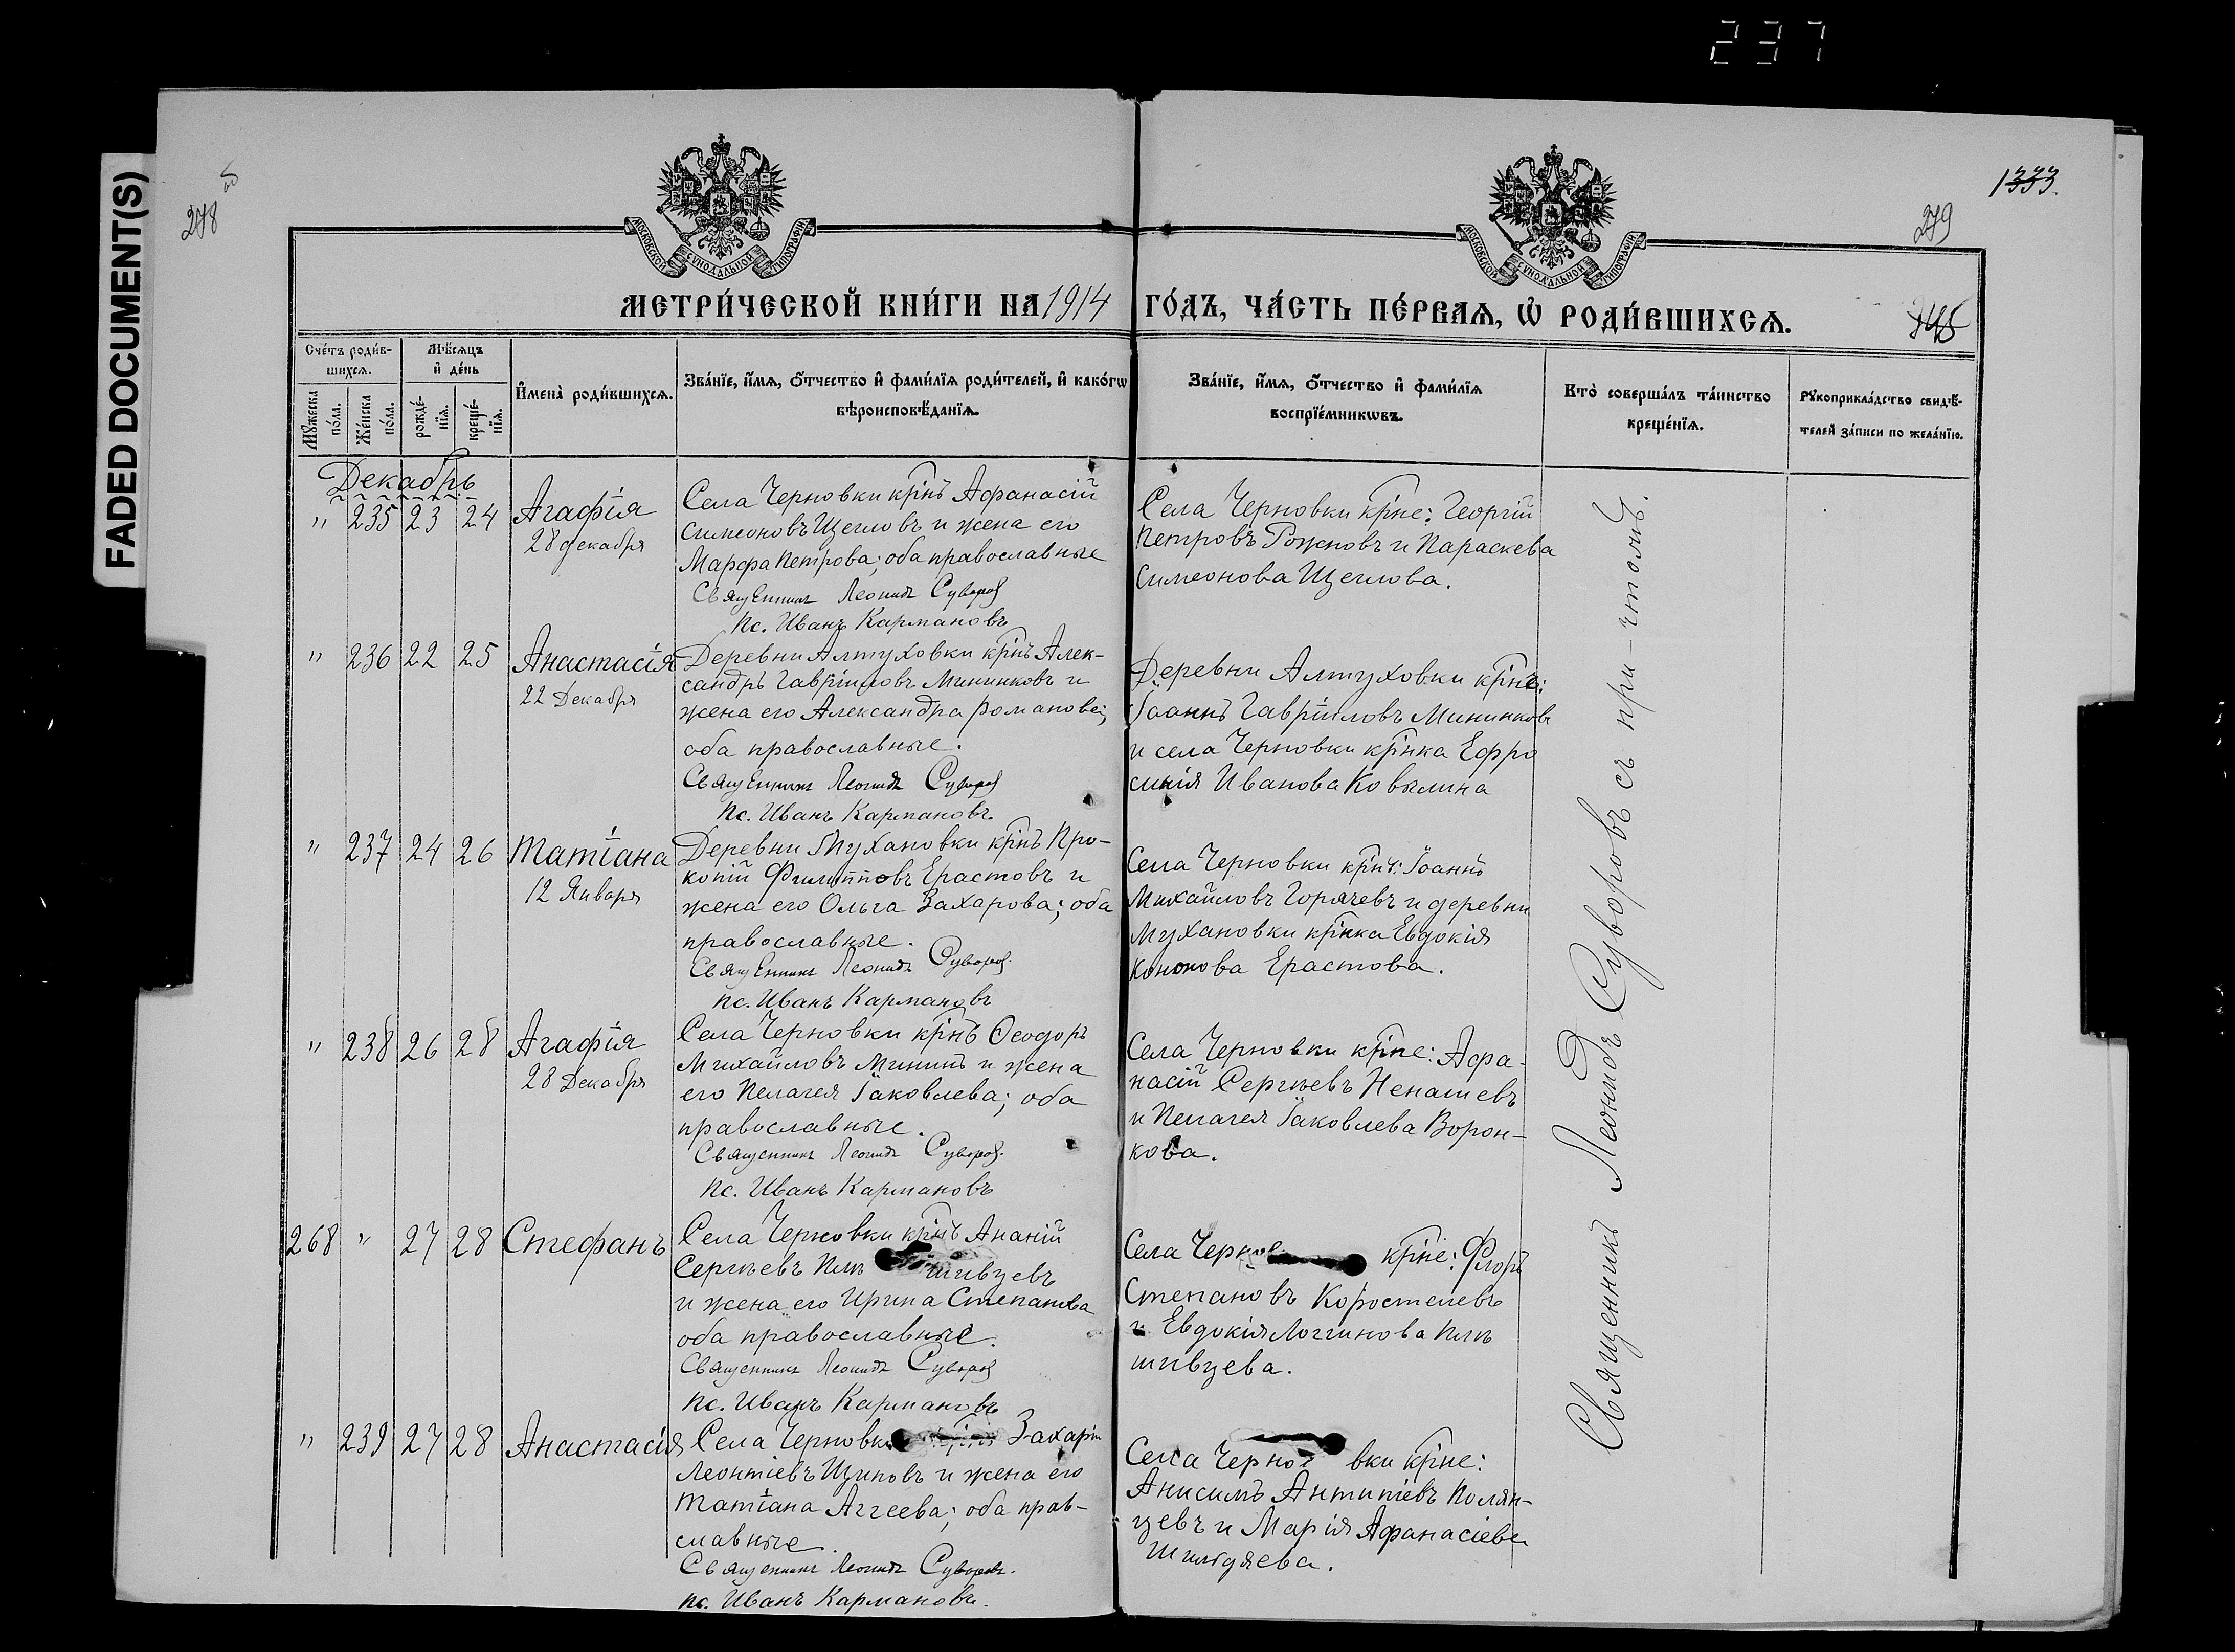 237
FADED DOCUMENT(S)
278 об
1333.
279
345
МОСКОВСКОЙ СѴНОДАЛЬНОЙ ТИПОГРАФІИ
МОСКОВСКОЙ СѴНОДАЛЬНОЙ ТИПОГРАФІИ
МЕТРИ́ЧЕСКОЙ КНИ́ГИ НА 1914 ГО́ДЪ, ЧА́СТЬ ПЕ́РВАѦ, Ѡ РОДИ́ВШИХСѦ.
Сче́тъ роди́в-
шихсѧ.
Мꙋ́жеска по́ла.
Же́нска по́ла.
Мѣ́сѧцъ
и҆ де́нь
рожде́-
нїѧ.
креще́-
нїѧ.
И҆мена̀ роди́вшихсѧ.
Зва́нїе, и҆́мѧ, ѻ҆́тчество и҆ фами́лїѧ роди́телей, и҆ како́гѡ
вѣроисповѣ́данїѧ.
Зва́нїе, и҆́мѧ, ѻ҆́тчество и҆ фами́лїѧ
воспрїе́мникѡвъ.
Кто̀ соверша́лъ та́инство
креще́нїѧ.
Рꙋкоприкла́дство свидѣ́-
телей за́писи по жела́нїю.
Декабрь
" 235 23 24 Агафія
28 декабря
Села Черновки кр͠інъ Афанасій
Симеоновъ Щегловъ и жена его
Марфа Петрова; оба православные
Священникъ Леонидъ Суворовъ
Пс. Иванъ Кармановъ
Села Черновки кр͠іне: Георгій
Петровъ Рожновъ и Параскева
Симеонова Щеглова.
" 236 22 25 Анастасія
22 Декабря
Деревни Алтуховки кр͠інъ Алек-
сандръ Гавріиловъ Мининковъ и
жена его Александра Романова;
оба православные.
Священникъ Леонидъ Суворовъ
Пс. Иванъ Кармановъ
Деревни Алтуховки кр͠інъ:
Іоаннъ Гавріиловъ Мининковъ
и села Черновки кр͠інка Ефро
синія Иванова Ковылина
" 237 24 26 Татіана
12 Января
Деревни Мухановки кр͠інъ Про-
копій Филипповъ Ерастовъ и
жена его Ольга Захарова; оба
православные.
Священникъ Леонидъ Суворовъ
Пс. Иванъ Кармановъ
Села Черновки кр͠інъ: Іоаннъ
Михайловъ Горячевъ и деревни
Мухановки кр͠інка Евдокія
Кононова Ерастова.
" 238 26 28 Агафія
28 Декабря
Села Черновки кр͠інъ Ѳеодоръ
Михайловъ Мининъ и жена
его Пелагея Іаковлева; оба
православные.
Священникъ Леонидъ Суворовъ
Пс. Иванъ Кармановъ
Села Черновки кр͠іне: Афа-
насій Сергѣевъ Ненашевъ
и Пелагея Іаковлева Ворон-
кова.
268 " 27 28 Стефанъ
Села Черновки кр͠інъ Ананій
Сергѣевъ Плѣ шивцевъ
и жена его Ирина Степанова
оба православные.
Священникъ Леонидъ Суворовъ
Пс. Иванъ Кармановъ
Села Чернов кр͠іне: Флоръ
Степановъ Коростелевъ
и Евдокія Логгинова Плѣ
шивцева.
" 239 27 28 Анастасія
Села Черновки Захарій
Леонтіевъ Щиповъ и жена его
Татіана Аггеева; оба прав-
славные.
Священникъ Леонидъ Суворовъ.
Пс. Иванъ Кармановъ.
Села Чернов вки кр͠іне:
Анисимъ Антипіевъ Полян-
цевъ и Марія Афанасіева
Шильдяева.
Священникъ Леонидъ Суворовъ съ при-чтомъ.